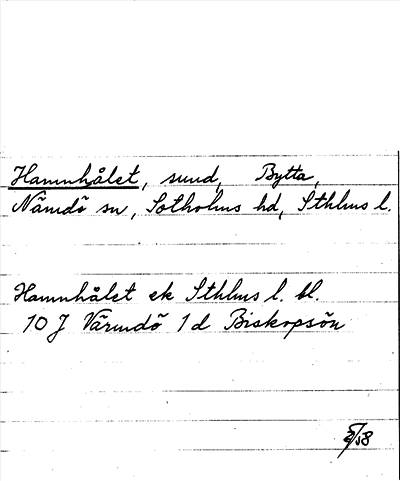 Hamnhålet, sund, Bytta,
Nämdö sn, Sotholms hd, Sthlms l.
Hamnhålet ek Sthlms l. bl.
10 J Värmdö 1 d Biskopsön